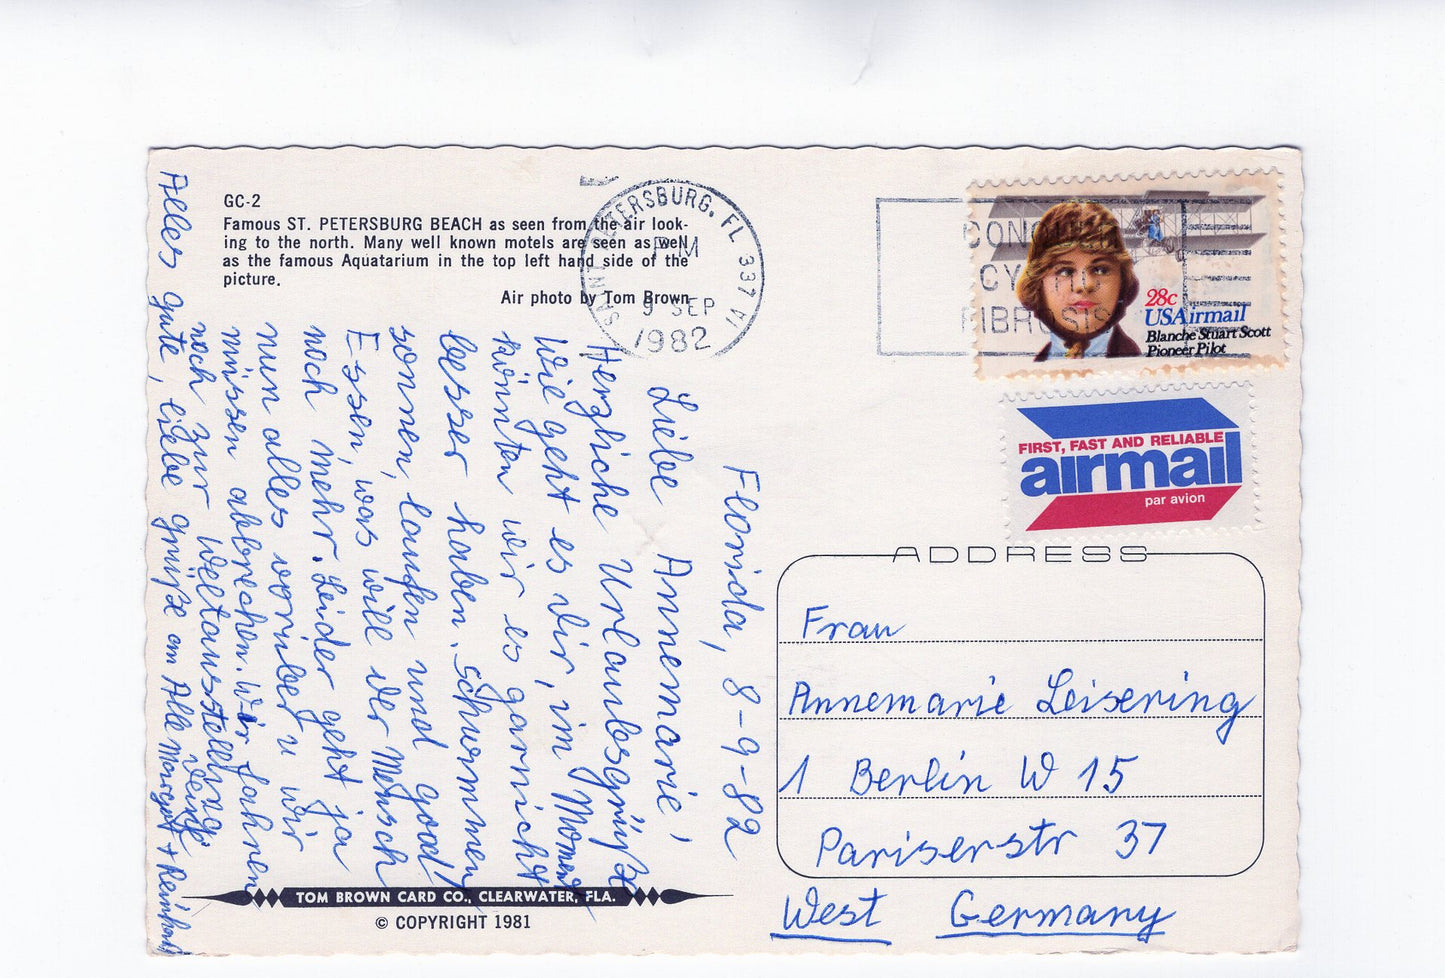 GC-2
Famous ST. PETERSBURG BEACH as seen from the air look-
ing to the north. Many well known motels are seen as well
as the famous Aquatarium in the top left hand side of the
picture.
Air photo by Tom Brown
SAINT PETERSBURG, FL 337
PM
9 SEP
1982
CYSTIC
FIBROSIS
28c
USAirmail
Blanche Stuart Scott
Pioneer Pilot
FIRST, FAST AND RELIABLE
airmail
par avion
Florida, 8-9-82
Liebe Annemarie!
Herzliche Urlaubsgrüße
Wie geht es Dir, im Moment
könnten wir es garnicht
besser haben. Schwimmen
sonnen, laufen und good!
Essen, was will der Mensch
noch mehr. Leider geht ja
nun alles vorüber u wir
müssen abbrechen. Wir fahren
noch zur Weltausstellung.
Alles gute, liebe grüße an Alle Margret + Reinhard
ADDRESS
Frau
Annemarie Leisering
1 Berlin W 15
Pariserstr 37
West Germany
TOM BROWN CARD CO., CLEARWATER, FLA.
© COPYRIGHT 1981